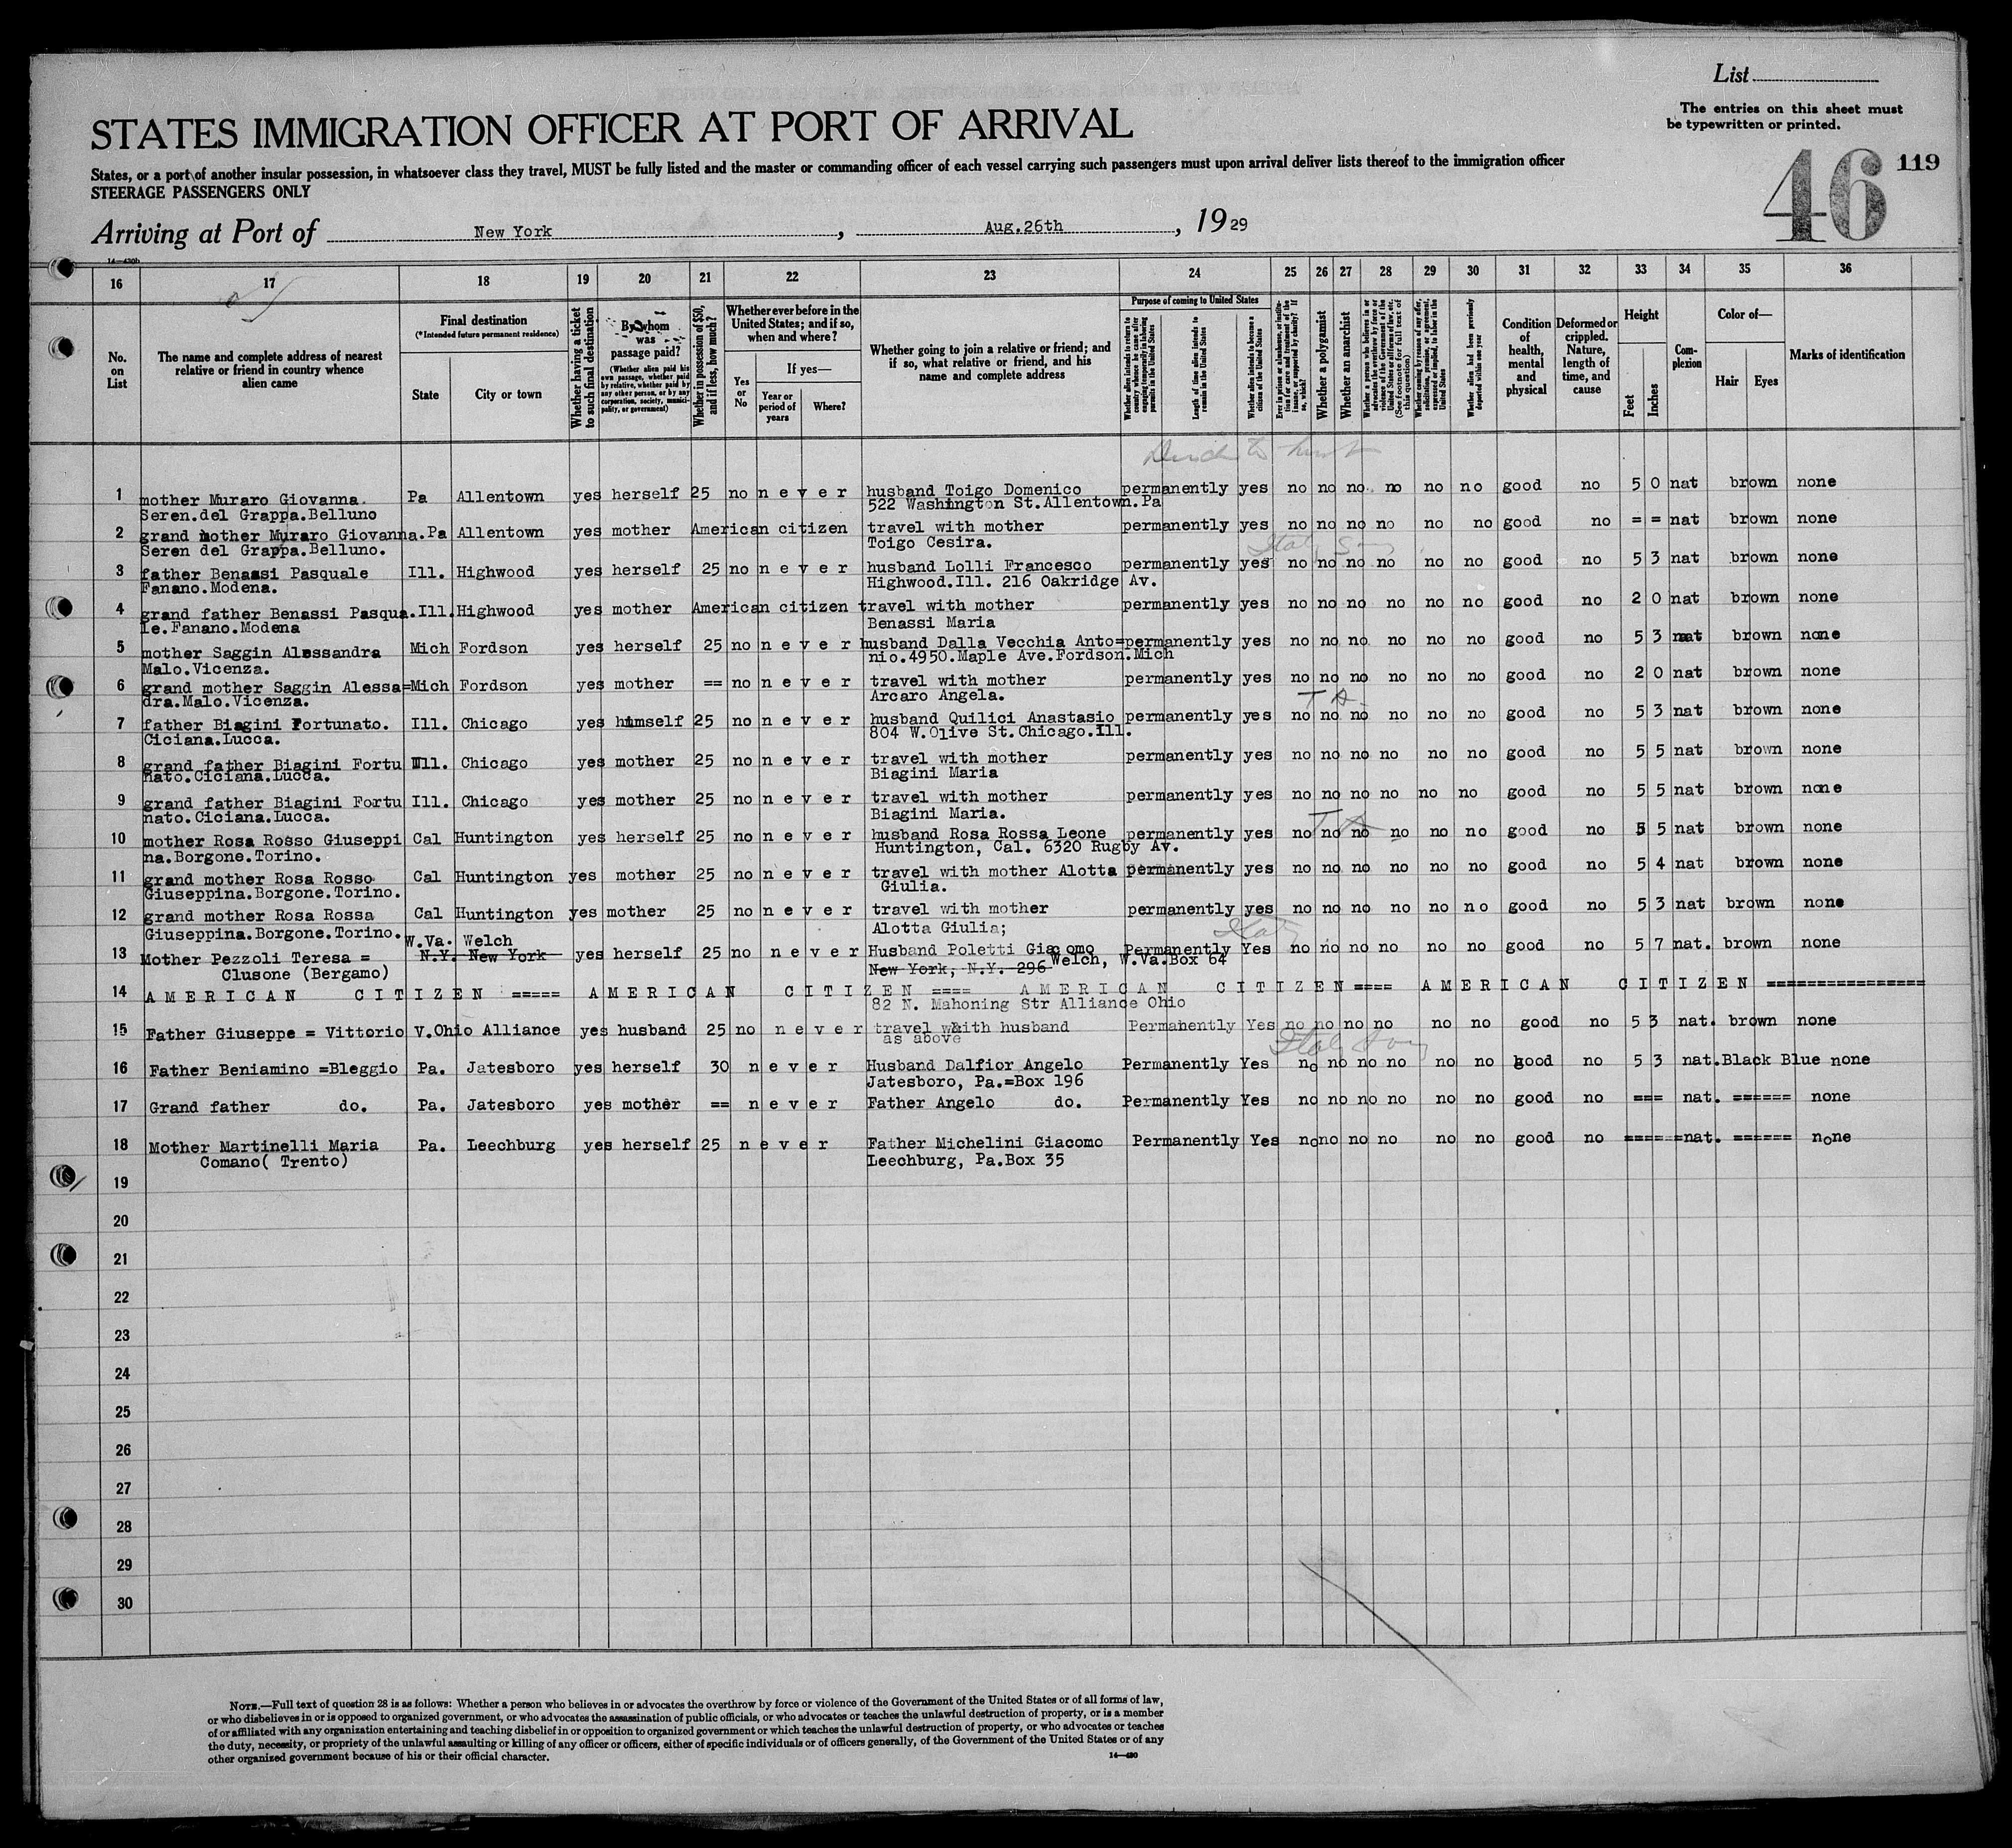 List
The entries on this sheet must
be typewritten or printed.
STATES IMMIGRATION OFFICER AT PORT OF ARRIVAL
46 119
States, or a port of another insular possession, in whatsoever class they travel, MUST be fully listed and the master or commanding officer of each vessel carrying such passengers must upon arrival deliver lists thereof to the immigration officer
STEERAGE PASSENGERS ONLY
Arriving at Port of New York, Aug.26th, 1929
14—430b
16 17 18 19 20 21 22 23 24 25 26 27 28 29 30 31 32 33 34 35 36
No. on List
The name and complete address of nearest relative or friend in country whence alien came
Final destination
(*Intended future permanent residence)
State
City or town
Whether having a ticket to such final destination
By whom was passage paid?
(Whether alien paid his own passage, whether paid by relative, whether paid by any other person, or by any corporation, society, municipality, or government)
Whether in possession of $50, and if less, how much?
Whether ever before in the United States; and if so, when and where?
Yes or No
If yes—
Year or period of years
Where?
Whether going to join a relative or friend; and if so, what relative or friend, and his name and complete address
Purpose of coming to United States
Whether alien intends to return to country whence he came after engaging temporarily in laboring pursuits in the United States
Length of time alien intends to remain in the United States
Whether alien intends to become a citizen of the United States
Ever in prison or almshouse, or institution for care and treatment of the insane, or supported by charity? If so, which?
Whether a polygamist
Whether an anarchist
Whether a person who believes in or advocates the overthrow by force or violence of the Government of the United States or all forms of law, etc. (See footnote for full text of this question)
Whether coming by reason of any offer, solicitation, promise, or agreement, expressed or implied, to labor in the United States
Whether alien had been previously deported within one year
Condition of health, mental and physical
Deformed or crippled. Nature, length of time, and cause
Height
Feet
Inches
Complexion
Color of—
Hair
Eyes
Marks of identification
1 mother Muraro Giovanna. Pa Allentown yes herself 25 no never husband Toigo Domenico permanently yes no no no no no no good no 5 0 nat brown none
Seren.del Grappa.Belluno 522 Washington St.Allentown.Pa
2 grand mother Muraro Giovanna.Pa Allentown yes mother American citizen travel with mother permanently yes no no no no no no good no = = nat brown none
Seren del Grappa.Belluno. Toigo Cesira.
3 father Benassi Pasquale Ill. Highwood yes herself 25 no never husband Lolli Francesco permanently yes no no no no no no good no 5 3 nat brown none
Fanano.Modena. Highwood.Ill. 216 Oakridge Av.
4 grand father Benassi Pasqua.Ill. Highwood yes mother American citizen travel with mother permanently yes no no no no no no good no 2 0 nat brown none
le.Fanano.Modena Benassi Maria
5 mother Saggin Alessandra Mich Fordson yes herself 25 no never husband Dalla Vecchia Anto= permanently yes no no no no no no good no 5 3 nat brown none
Malo.Vicenza. nio.4950.Maple Ave.Fordson.Mich
6 grand mother Saggin Alessa= Mich Fordson yes mother == no never travel with mother permanently yes no no no no no no good no 2 0 nat brown none
dra.Malo.Vicenza. Arcaro Angela.
7 father Biagini Fortunato. Ill. Chicago yes himself 25 no never husband Quilici Anastasio permanently yes no no no no no no good no 5 3 nat brown none
Ciciana.Lucca. 804 W.Olive St.Chicago.Ill.
8 grand father Biagini Fortu Ill. Chicago yes mother 25 no never travel with mother permanently yes no no no no no no good no 5 5 nat brown none
nato.Ciciana.Lucca. Biagini Maria
9 grand father Biagini Fortu Ill. Chicago yes mother 25 no never travel with mother permanently yes no no no no no no good no 5 5 nat brown none
nato.Ciciana.Lucca. Biagini Maria.
10 mother Rosa Rosso Giuseppi Cal Huntington yes herself 25 no never husband Rosa Rossa Leone permanently yes no no no no no no good no 5 5 nat brown none
na.Borgone.Torino. Huntington, Cal. 6320 Rugby Av.
11 grand mother Rosa Rosso Cal Huntington yes mother 25 no never travel with mother Alotta permanently yes no no no no no no good no 5 4 nat brown none
Giuseppina.Borgone.Torino. Giulia.
12 grand mother Rosa Rossa Cal Huntington yes mother 25 no never travel with mother permanently yes no no no no no no good no 5 3 nat brown none
Giuseppina.Borgone.Torino. Alotta Giulia;
W.Va. Welch
13 Mother Pezzoli Teresa = N.Y. New York yes herself 25 no never Husband Poletti Giacomo Permanently Yes no no no no no no good no 5 7 nat. brown none
Clusone (Bergamo) New York, N.Y. 296 Welch, W.Va.Box 64
14 AMERICAN CITIZEN ===== AMERICAN CITIZEN ==== AMERICAN CITIZEN ==== AMERICAN CITIZEN ===============
82 N. Mahoning Str Alliance Ohio
15 Father Giuseppe = Vittorio V.Ohio Alliance yes husband 25 no never travel with husband Permanently Yes no no no no no no good no 5 3 nat. brown none
as above
16 Father Beniamino =Bleggio Pa. Jatesboro yes herself 30 never Husband Dalfior Angelo Permanently Yes no no no no no no good no 5 3 nat.Black Blue none
Jatesboro, Pa.=Box 196
17 Grand father do. Pa. Jatesboro yes mother == never Father Angelo do. Permanently Yes no no no no no no good no === nat. ====== none
18 Mother Martinelli Maria Pa. Leechburg yes herself 25 never Father Michelini Giacomo Permanently Yes no no no no no no good no ======nat. ====== none
Comano( Trento) Leechburg, Pa.Box 35
19
20
21
22
23
24
25
26
27
28
29
30
NOTE.—Full text of question 28 is as follows: Whether a person who believes in or advocates the overthrow by force or violence of the Government of the United States or of all forms of law,
or who disbelieves in or is opposed to organized government, or who advocates the assassination of public officials, or who advocates or teaches the unlawful destruction of property, or is a member
of or affiliated with any organization entertaining and teaching disbelief in or opposition to organized government or which teaches the unlawful destruction of property, or who advocates or teaches
the duty, necessity, or propriety of the unlawful assaulting or killing of any officer or officers, either of specific individuals or of officers generally, of the Government of the United States or of any
other organized government because of his or their official character.
14—430